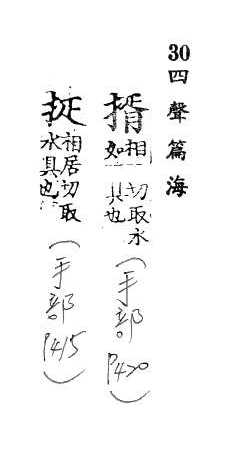 30 四聲篇海
揟
相 切取水
如 具也
(手部 P420)
相居切取
水具也
(手部 P415)